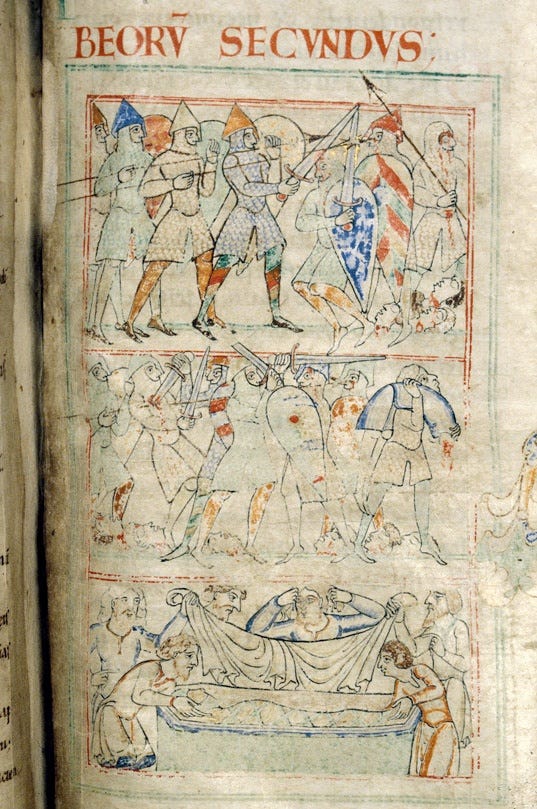 BEORV̄ SECVNDVS;